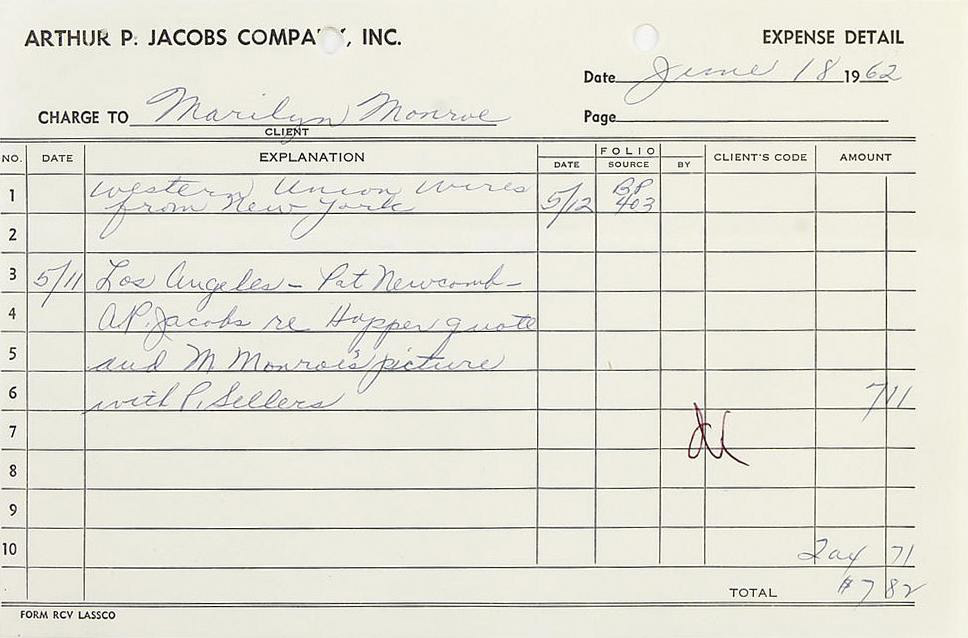 ARTHUR P. JACOBS COMPA , INC.
EXPENSE DETAIL
Date June 18 1962
CHARGE TO Marilyn Monroe
Page
CLIENT
NO. DATE EXPLANATION FOLIO DATE SOURCE BY CLIENT'S CODE AMOUNT
1 Western Union wires 5/12 BP
from New York 403
2
3 5/11 Los Angeles - Pat Newcomb -
4 A.P. Jacobs re Hopper quote
5 and M. Monroe's picture
6 with P. Sellers 7 11
7
8
9
10 Tax 71
TOTAL $7 82
FORM RCV LASSCO